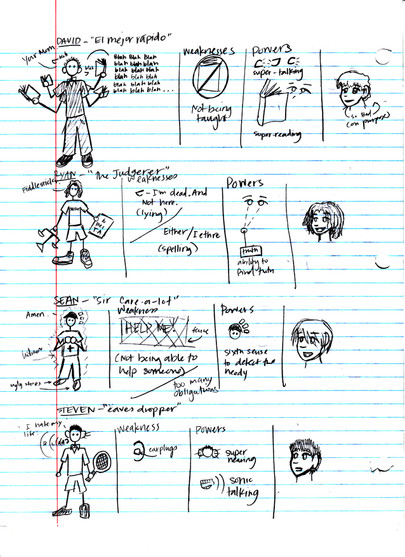 DAVID - "El mejor rápido"
Your Mom
blah
blah
Blah Blah Blah
blah blah blah
blah blah blah
blah blah blah
blah blah
blah blah blah...
Weaknesses
Not being
taught
Powers
super-talking
super-reading
(so bad
on purpose)
RYAN - "The Judgerer"
Weaknesses
I'm dead. And
Not here.
(lying)
Ether/Iethre
(spelling)
Powers
truth
ability to
find truth
SEAN - "Sir Care-a-lot"
Amen
ugly shoes
Weakness
HELP ME!
fence
(Not being able to
help someone)
too many
obligations
Powers
sixth sense
to detect the
needy
STEVEN - "eaves dropper"
I hate my
life
Weakness
earplugs
Powers
super
hearing
sonic
talking